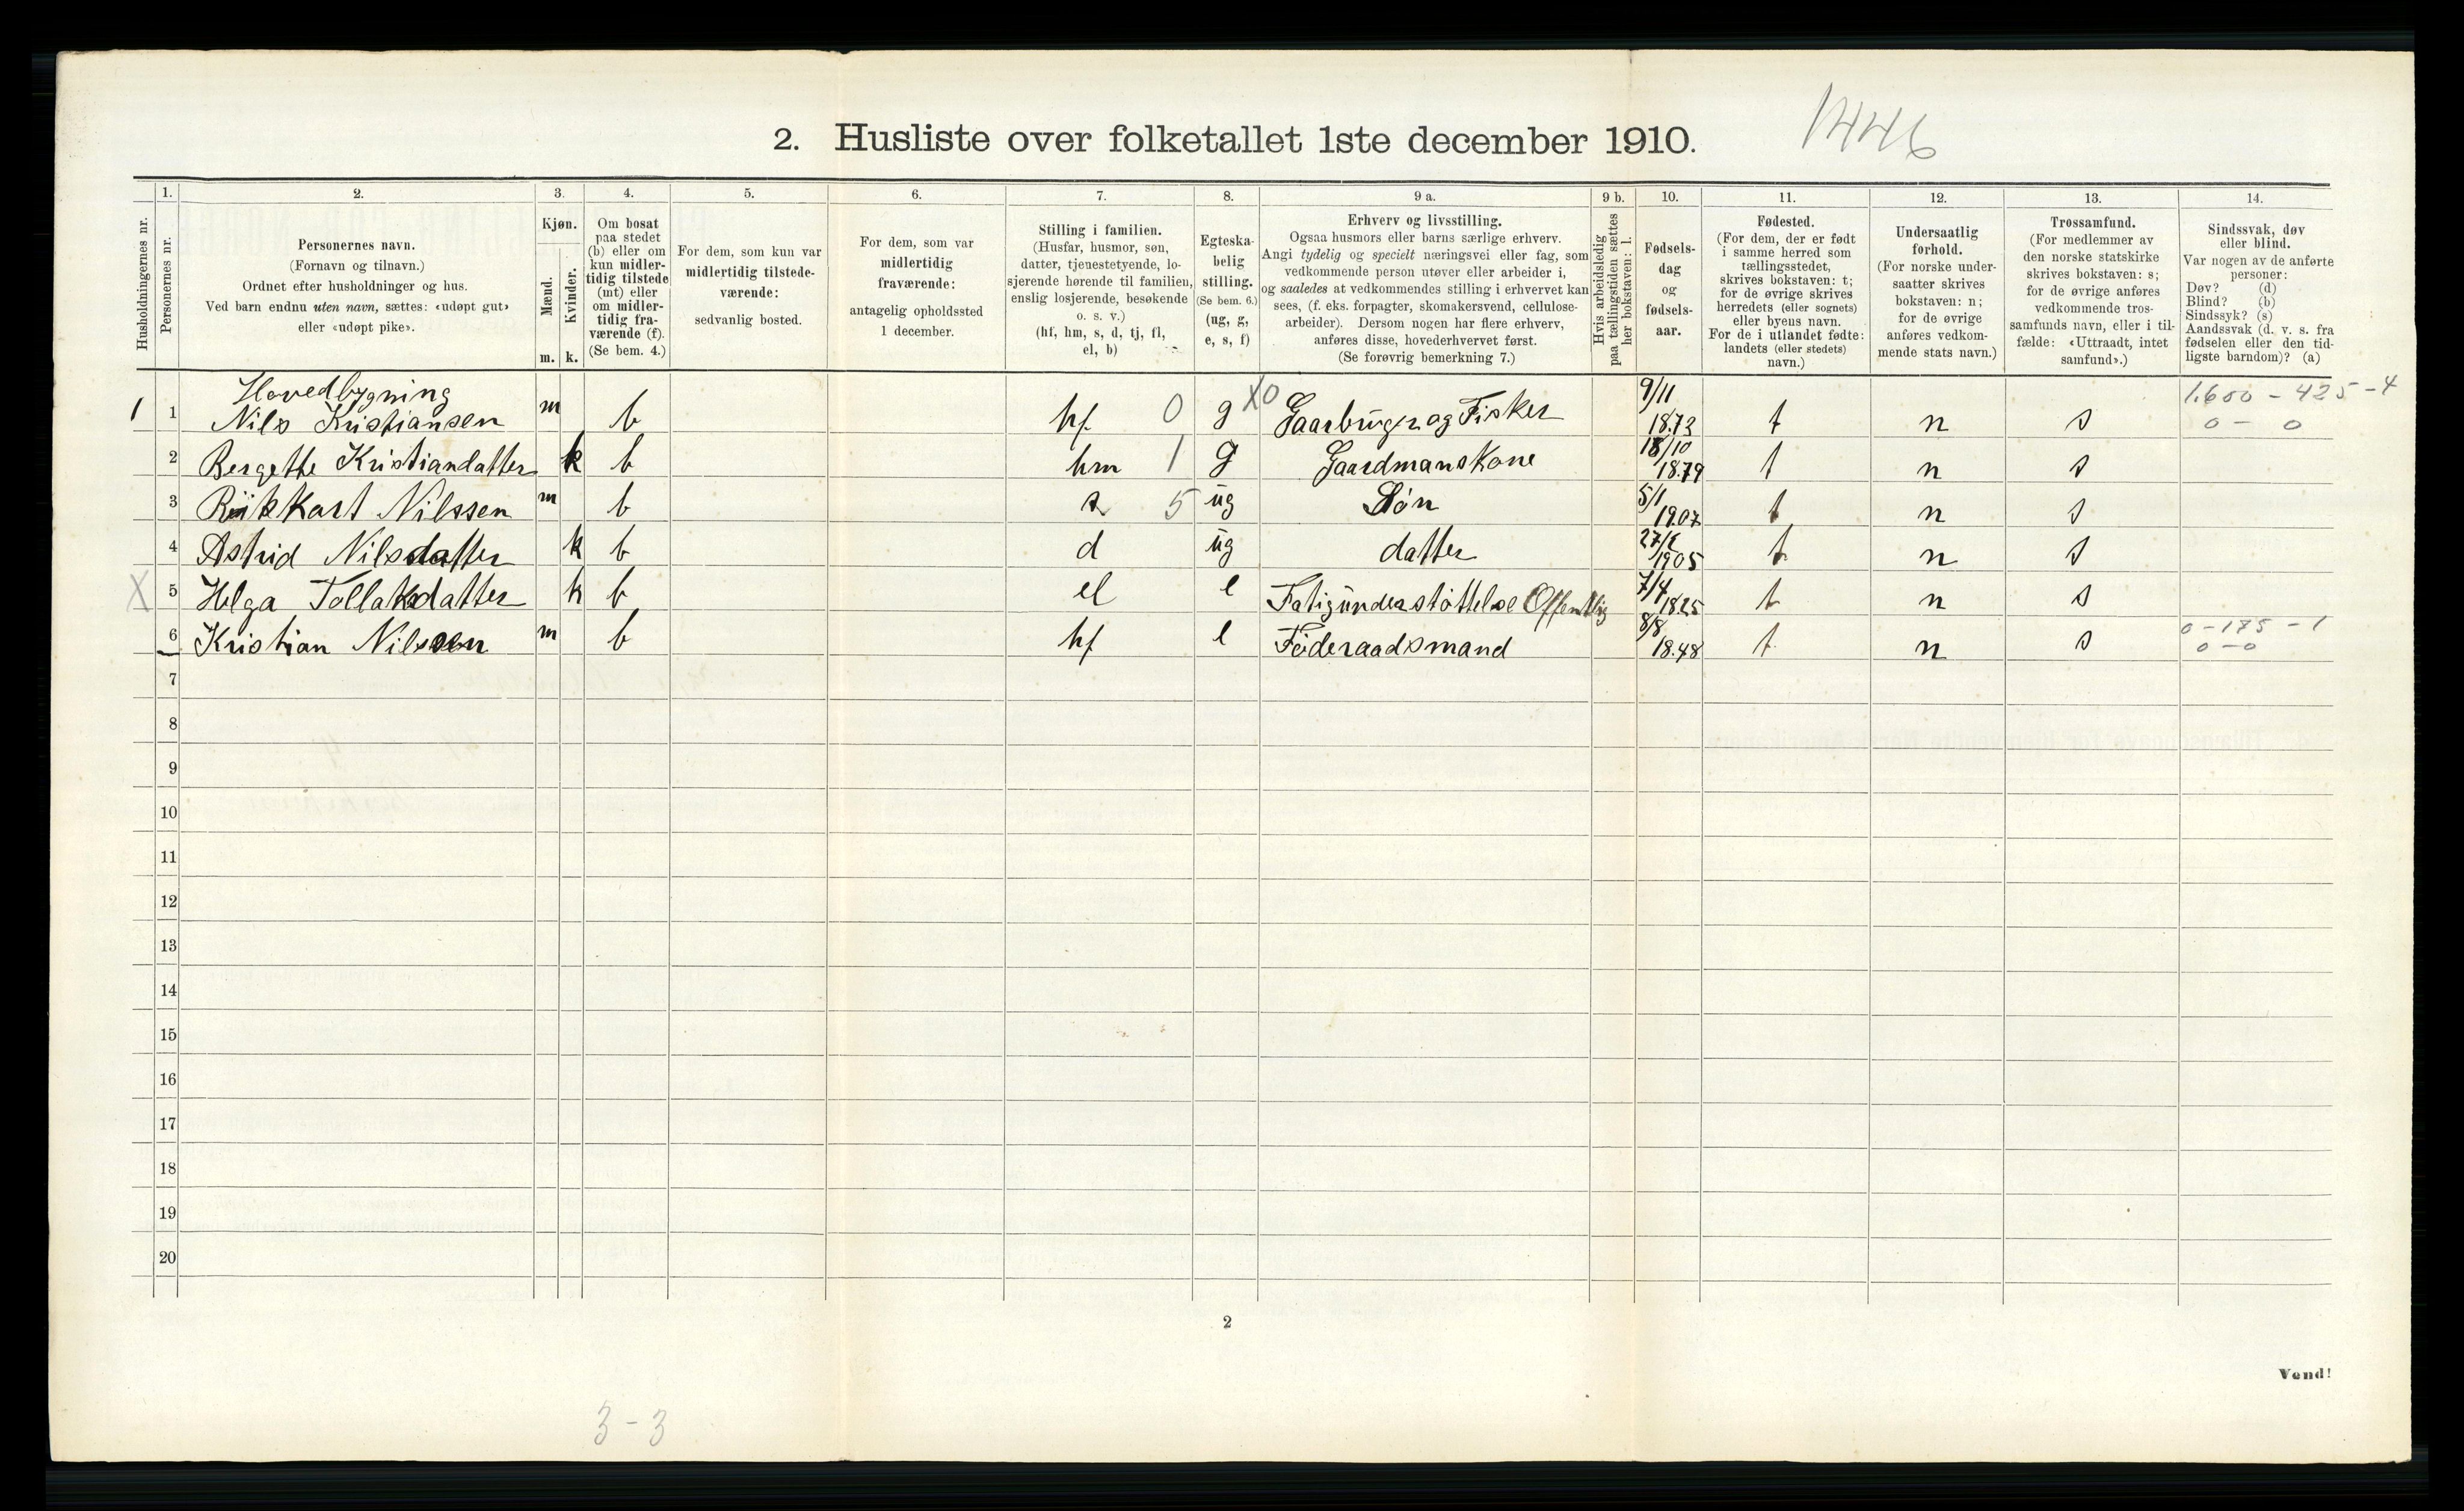 1446
2. Husliste over folketallet 1ste december 1910.
Husholdningernes nr.
1.
Personernes nr.
2.
Personernes navn.
(Fornavn og tilnavn.)
Ordnet efter husholdninger og hus.
Ved barn endnu uten navn, sættes: «udøpt gut»
eller «udøpt pike».
3.
Kjøn.
Mænd.
Kvinder.
m. k.
4.
Om bosat
paa stedet
(b) eller om
kun midler-
tidig tilstede
(mt) eller
om midler-
tidig fra-
værende (f).
(Se bem. 4.)
5.
For dem, som kun var
midlertidig tilstede-
værende:
sedvanlig bosted.
6.
For dem, som var
midlertidig
fraværende:
antagelig opholdssted
1 december.
7.
Stilling i familien.
(Husfar, husmor, søn,
datter, tjenestetyende, lo-
sjerende hørende til familien,
enslig losjerende, besøkende
o. s. v.)
(hf, hm, s, d, tj, fl,
el, b)
8.
Egteska-
belig
stilling.
(Se bem. 6.)
(ug, g,
e, s, f)
9 a.
Erhverv og livsstilling.
Ogsaa husmors eller barns særlige erhverv.
Angi tydelig og specielt næringsvei eller fag, som
vedkommende person utøver eller arbeider i,
og saaledes at vedkommendes stilling i erhvervet kan
sees, (f. eks. forpagter, skomakersvend, cellulose-
arbeider). Dersom nogen har flere erhverv,
anføres disse, hovederhvervet først.
(Se forøvrig bemerkning 7.)
9 b.
Hvis arbeidsledig
paa tællingstiden sættes
her bokstaven: l.
10.
Fødsels-
dag
og
fødsels-
aar.
11.
Fødested.
(For dem, der er født
i samme herred som
tællingsstedet,
skrives bokstaven: t;
for de øvrige skrives
herredets (eller sognets)
eller byens navn.
For de i utlandet fødte:
landets (eller stedets)
navn.)
12.
Undersaatlig
forhold.
(For norske under-
saatter skrives
bokstaven: n;
for de øvrige
anføres vedkom-
mende stats navn.)
13.
Trossamfund.
(For medlemmer av
den norske statskirke
skrives bokstaven: s;
for de øvrige anføres
vedkommende tros-
samfunds navn, eller i til-
fælde: «Uttraadt, intet
samfund».)
14.
Sindssvak, døv
eller blind.
Var nogen av de anførte
personer:
Døv? (d)
Blind? (b)
Sindssyk? (s)
Aandssvak (d. v. s. fra
fødselen eller den tid-
ligste barndom)? (a)
Hovedbygning
1 1 Nils Kristiansen m b hf 0 g X0 Gaarbruger og Fisker 9/11 1873 t n s 1.600 - 425 - 4
0 - 0
2 Bergette Kristiandatter k b hm 1 g Gaardmanskone 18/10 1879 t n s
3 Rikkart Nilssen m b s 5 ug Søn 5/1 1907 t n s
4 Astrid Nilsdatter k b d ug datter 1905 t n s
X 5 Helga Tollaksdatter k b el e Fatigunderstøttelse Offentlig 7/4 1825 t n s
6 Kristian Nilssen m b hf e Føderaadsmand 8/8 1848 t n s 0 - 175 - 1
0 - 0
7
8
9
10
11
12
13
14
15
16
17
18
19
20
2
Vend!
3 - 3